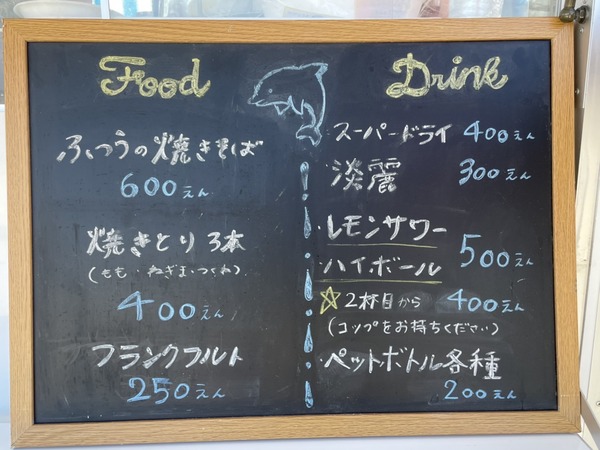 Food
ふつうの焼きそば
600えん
焼きとり 3本
(もも・ねぎま・つくね)
400えん
フランクフルト
250えん
Drink
スーパードライ 400えん
淡麗 300えん
・レモンサワー
・ハイボール 500えん
☆2杯目から 400えん
(コップをお持ちください)
・ペットボトル各種
200えん